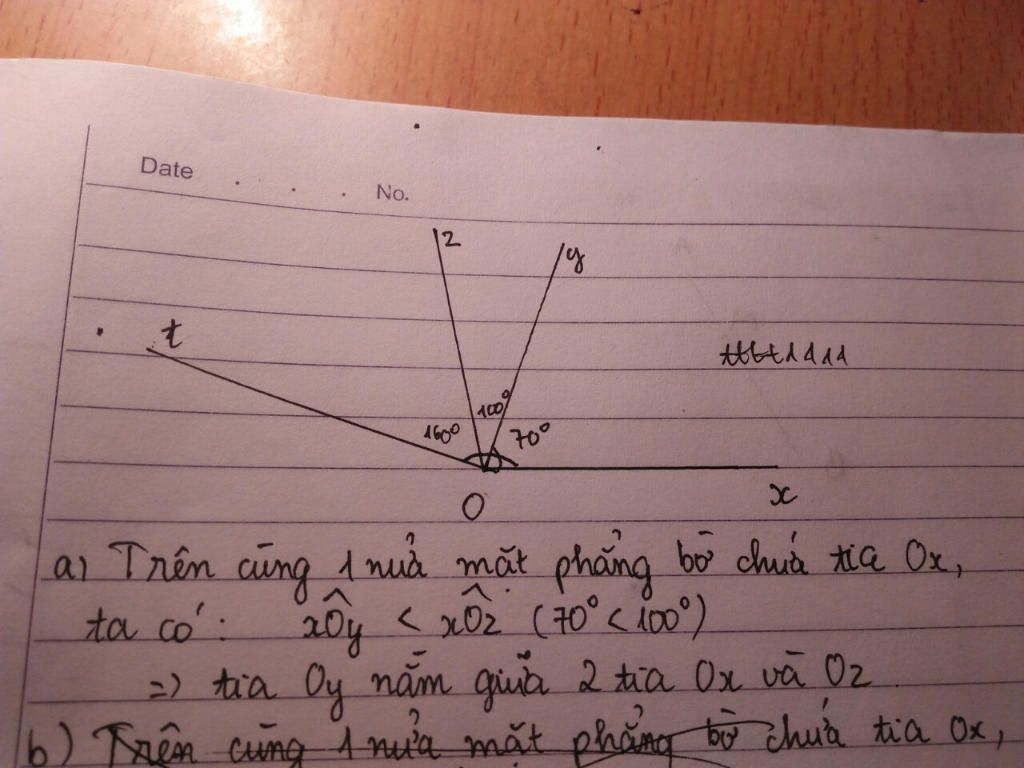 Date . . . No.
z
y
t
100°
160°
70°
O
x
a) Trên cùng 1 nửa mặt phẳng bờ chứa tia Ox,
ta có: xÔy < xÔz (70° < 100°)
=> tia Oy nằm giữa 2 tia Ox và Oz
b) Trên cùng 1 nửa mặt phẳng bờ chứa tia Ox,